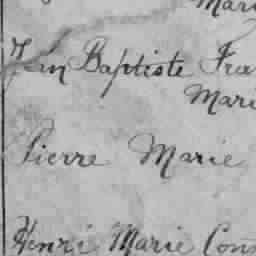 Mari
Jean Baptiste Fra
Mari
Pierre Marie
Henri Marie Cons